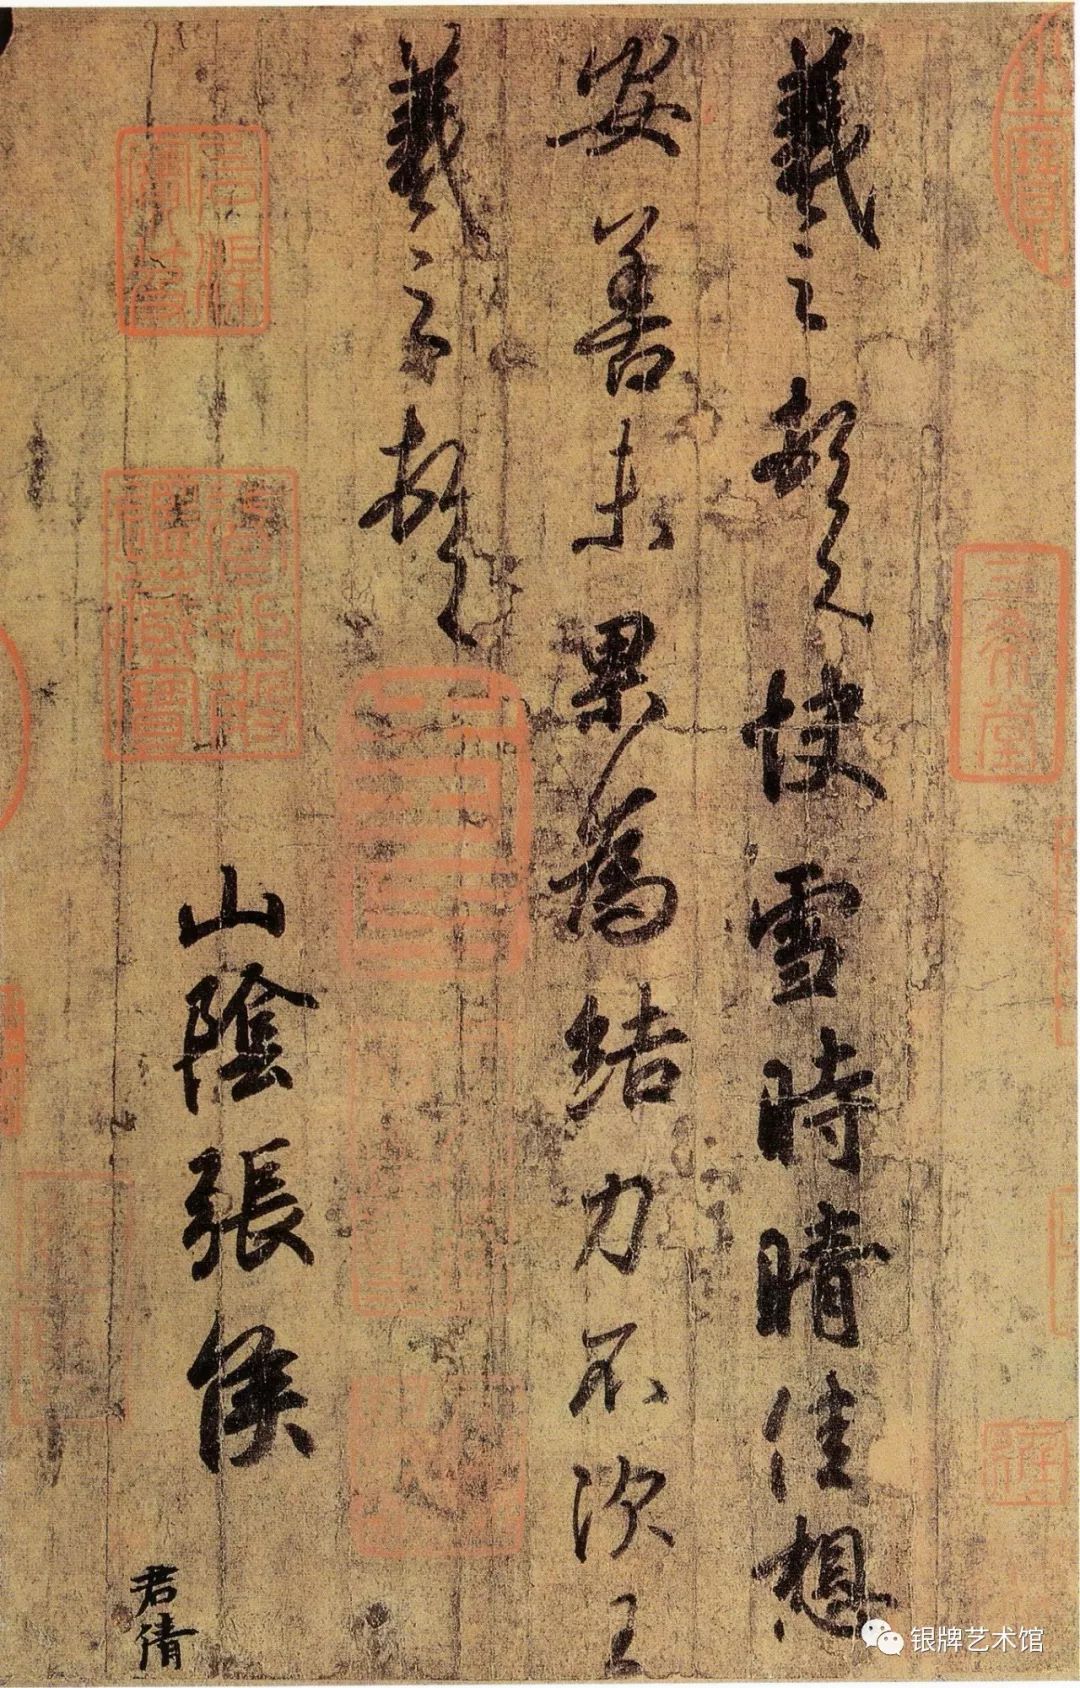 羲之頓首快雪時晴佳想
安善未果為結力不次王
羲之頓首
山陰張侯
君倩
三希堂
银牌艺术馆